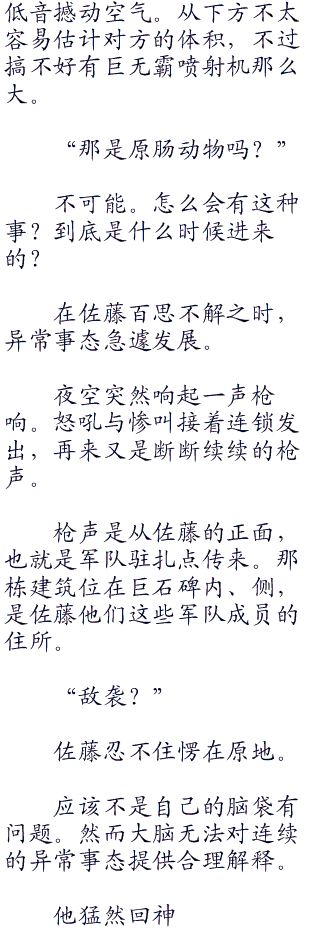 低音撼动空气。从下方不太
容易估计对方的体积，不过
搞不好有巨无霸喷射机那么
大。
“那是原肠动物吗？”
不可能。怎么会有这种
事？到底是什么时候进来
的？
在佐藤百思不解之时，
异常事态急遽发展。
夜空突然响起一声枪
响。怒吼与惨叫接着连锁发
出，再来又是断断续续的枪
声。
枪声是从佐藤的正面，
也就是军队驻扎点传来。那
栋建筑位在巨石碑内、侧，
是佐藤他们这些军队成员的
住所。
“敌袭？”
佐藤忍不住愣在原地。
应该不是自己的脑袋有
问题。然而大脑无法对连续
的异常事态提供合理解释。
他猛然回神